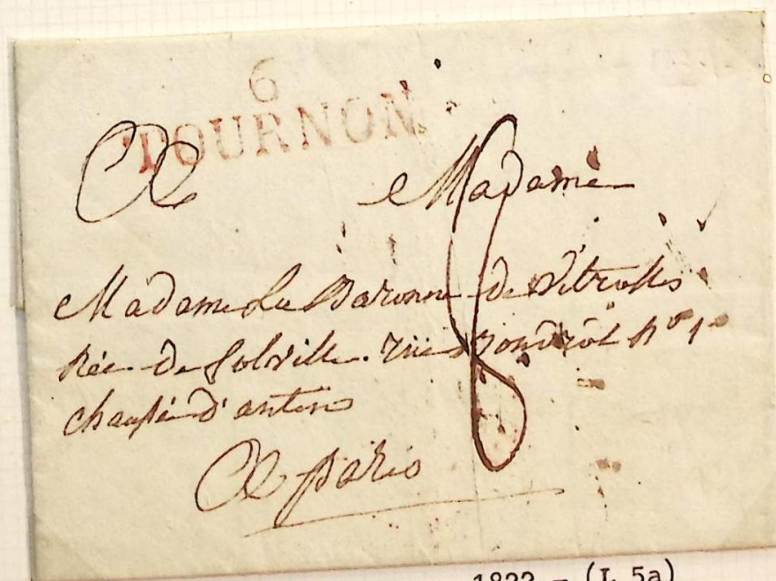 6
TOURNON
A Madame
Madame La Baronne de Vitrolles
Née de Folville. Rue n° 1
chaussée d'antin
A paris
8
1822 - (L 5a)